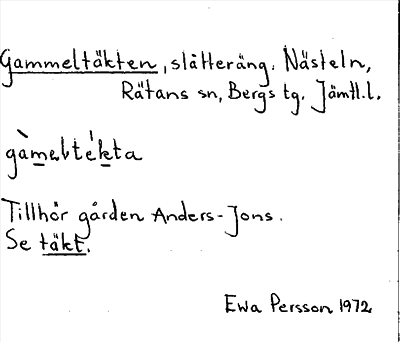 Gammeltäkten, slåtteräng. Nästeln,
Rätans sn, Bergs tg. Jämtl.l.
gàmeltékta
Tillhör gården Anders-Jons.
Se täkt.
Ewa Persson 1972